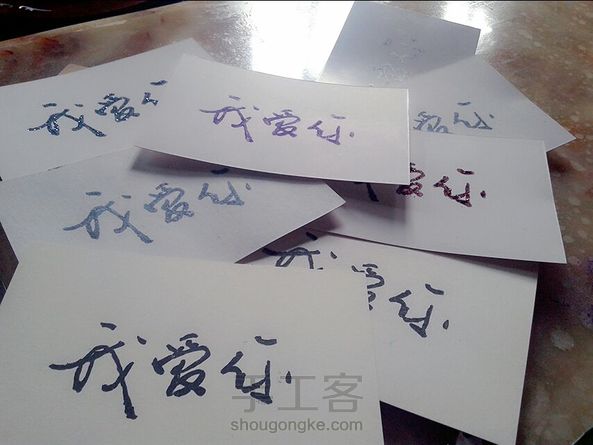 我爱你
我爱你
爱你
我爱你
爱你
我爱你
我爱你
手工客
shougongke.com